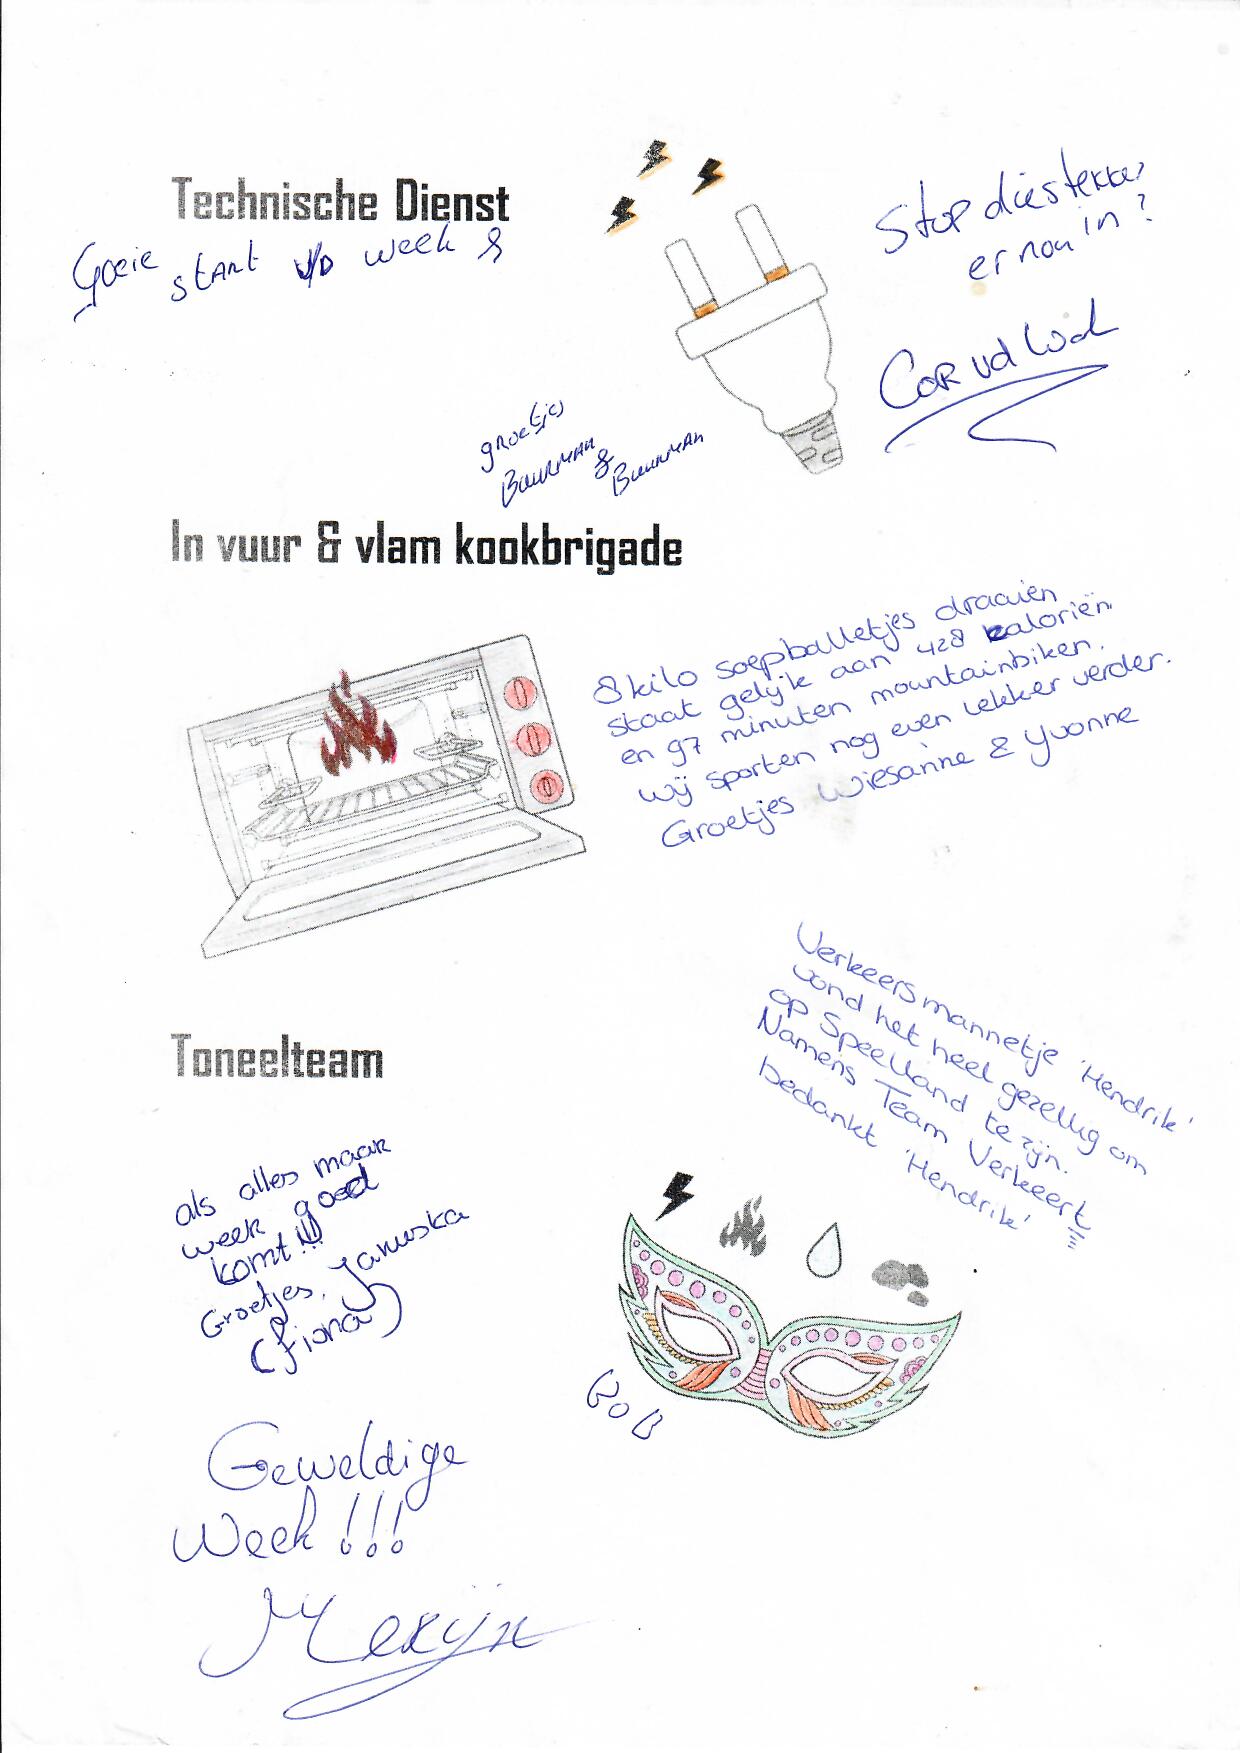 Technische Dienst
Goeie start v/d week &
Stop die stekker
er nou in?
Cor vd Wal
groetjes
Buurman & Buurman
In vuur & vlam kookbrigade
8 kilo soepballetjes draaien
staat gelijk aan 428 kaloriën
en 97 minuten mountainbiken.
wij sporten nog even lekker verder.
Groetjes Wiesanne & Yvonne
Verkeersmannetje 'Hendrik'
vond het heel gezellig om
op Speelland te zijn.
Namens Team Verkeert
bedankt 'Hendrik'
Toneelteam
als alles maar
week goed
komt!!!
Groetjes, Januska
(fiona)
BOB
Geweldige
Week!!!
Merijn